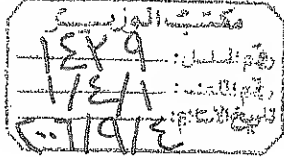 مكتب الوزير
رقم التسلسل: ١٤٢٩
رقم الملف: ١/٤/١
تاريخ الاستلام:
٢٠٠٦/٩/٤